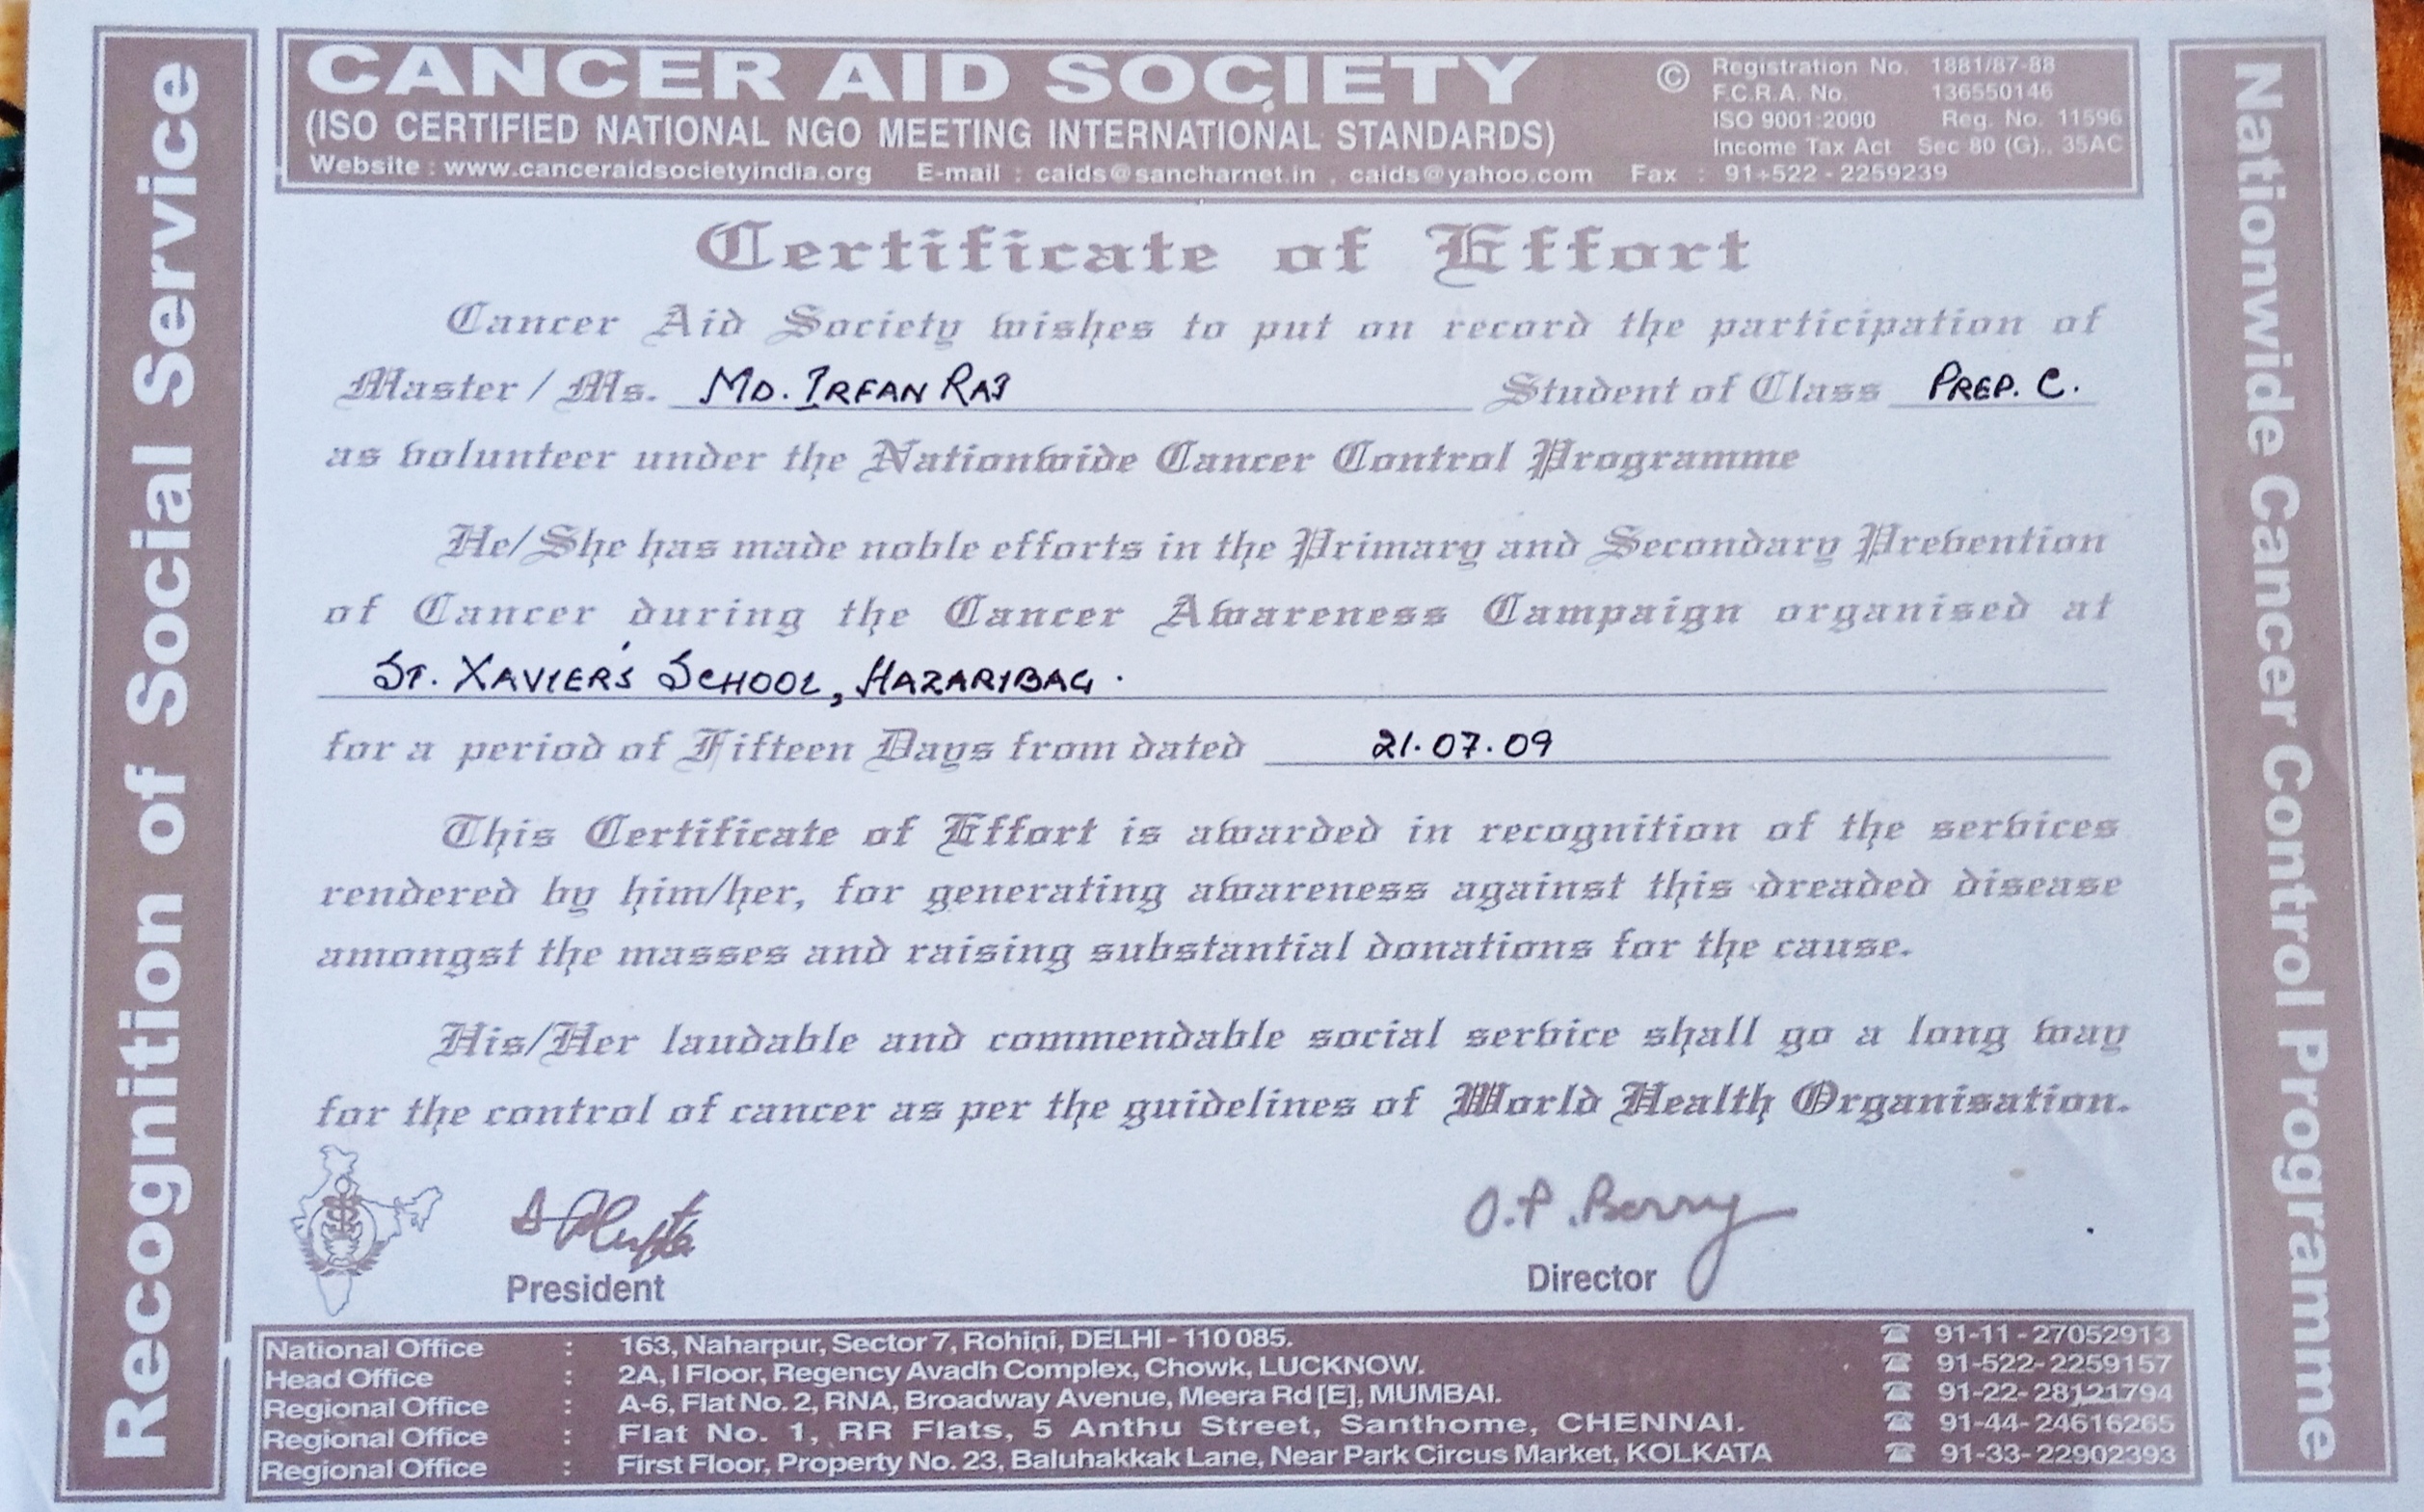 Recognition of Social Service
CANCER AID SOCIETY
(ISO CERTIFIED NATIONAL NGO MEETING INTERNATIONAL STANDARDS)
Website : www.canceraidsocietyindia.org E-mail : caids@sancharnet.in , caids@yahoo.com Fax : 91+522 - 2259239
© Registration No. 1881/87-88
F.C.R.A. No. 136550146
ISO 9001:2000 Reg. No. 11596
Income Tax Act Sec 80 (G)., 35AC
Certificate of Effort
Cancer Aid Society wishes to put on record the participation of
Master / Ms. MD. IRFAN RAJ Student of Class PREP. C.
as volunteer under the Nationwide Cancer Control Programme
He/She has made noble efforts in the Primary and Secondary Prevention
of Cancer during the Cancer Awareness Campaign organised at
ST. XAVIER'S SCHOOL, HAZARIBAG.
for a period of Fifteen Days from dated 21.07.09
This Certificate of Effort is awarded in recognition of the services
rendered by him/her, for generating awareness against this dreaded disease
amongst the masses and raising substantial donations for the cause.
His/Her laudable and commendable social service shall go a long way
for the control of cancer as per the guidelines of World Health Organisation.
O.P. Berry
President
Director
National Office : 163, Naharpur, Sector 7, Rohini, DELHI - 110 085. ☎ 91-11 - 27052913
Head Office : 2A, I Floor, Regency Avadh Complex, Chowk, LUCKNOW. ☎ 91-522- 2259157
Regional Office : A-6, Flat No. 2, RNA, Broadway Avenue, Meera Rd [E], MUMBAI. ☎ 91-22- 28121794
Regional Office : Flat No. 1, RR Flats, 5 Anthu Street, Santhome, CHENNAI. ☎ 91-44- 24616265
Regional Office : First Floor, Property No. 23, Baluhakkak Lane, Near Park Circus Market, KOLKATA ☎ 91-33- 22902393
Nationwide Cancer Control Programme